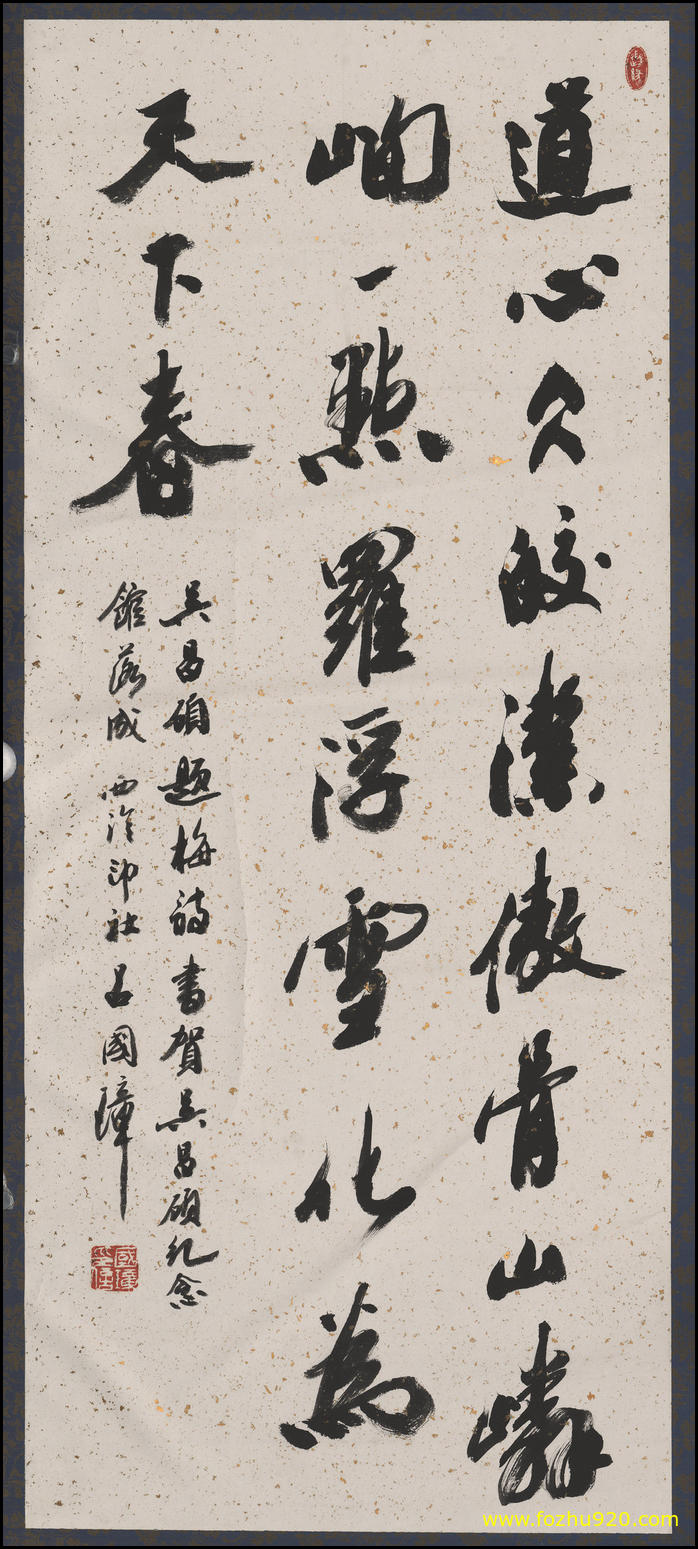 道心久皎潔傲骨山嶙
峋一點羅浮雪化為
天下春
吴昌碩題梅詩書賀吴昌碩纪念
館落成西泠印社吕國璋
www.fozhu920.com